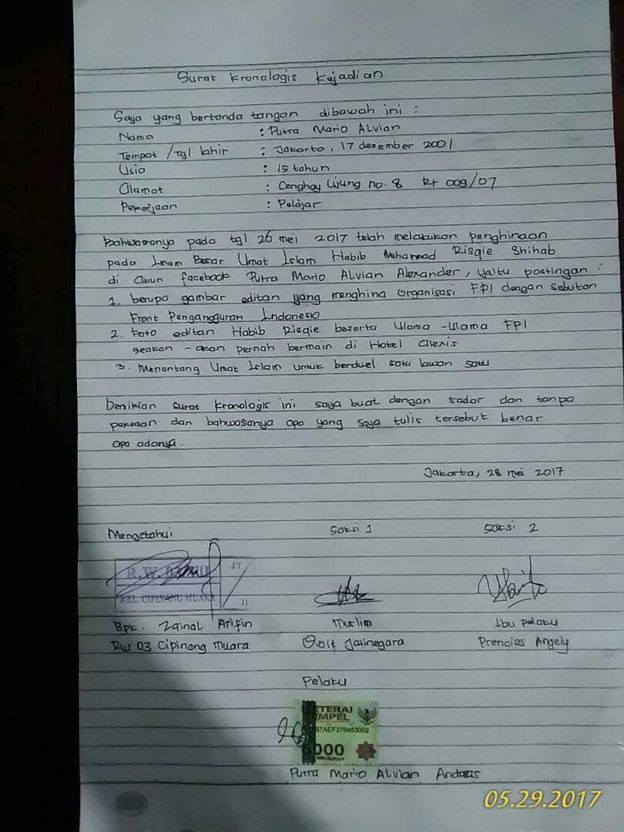 Surat Kronologis Kejadian
Saya yang bertanda tangan dibawah ini :
Nama : Putra Mario Alvian
Tempat / tgl lahir : Jakarta, 17 desember 2001
Usia : 15 tahun
Alamat : no. 8 Rt 009/07
Pekerjaan : Pelajar
bahwasanya pada tgl 26 mei 2017 telah melakukan penghinaan
pada Imam Besar Umat Islam Habib Muhammad Risqie Shihab
di akun facebook Putra Mario Alvian Alexander, yaitu postingan :
1. berupa gambar editan yang menghina organisasi FPI dengan sebutan
Front Pengangguran Indonesia
2. Foto editan Habib Risqie beserta Ulama - Ulama FPI
seakan - akan pernah bermain di Hotel Alexis
3. Menantang Umat Islam untuk berduel satu lawan satu
Demikian surat kronologis ini saya buat dengan sadar dan tanpa
paksaan dan bahwasanya apa yang saya tulis tersebut benar
apa adanya.
Jakarta, 28 mei 2017
Mengetahui Saksi 1 Saksi 2
R.W. JT
KEL. CIPINANG MUARA II
Bpk. Zainal Arifin Muslim Ibu pelaku
RW 03 Cipinang muara Jatinegara Prencies Angely
Pelaku
METERAI
TEMPEL
6000
Putra Mario Alvian Andreas
05.29.2017